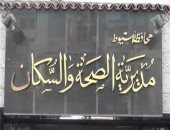 محافظة أسيوط
مديرية الصحة والسكان